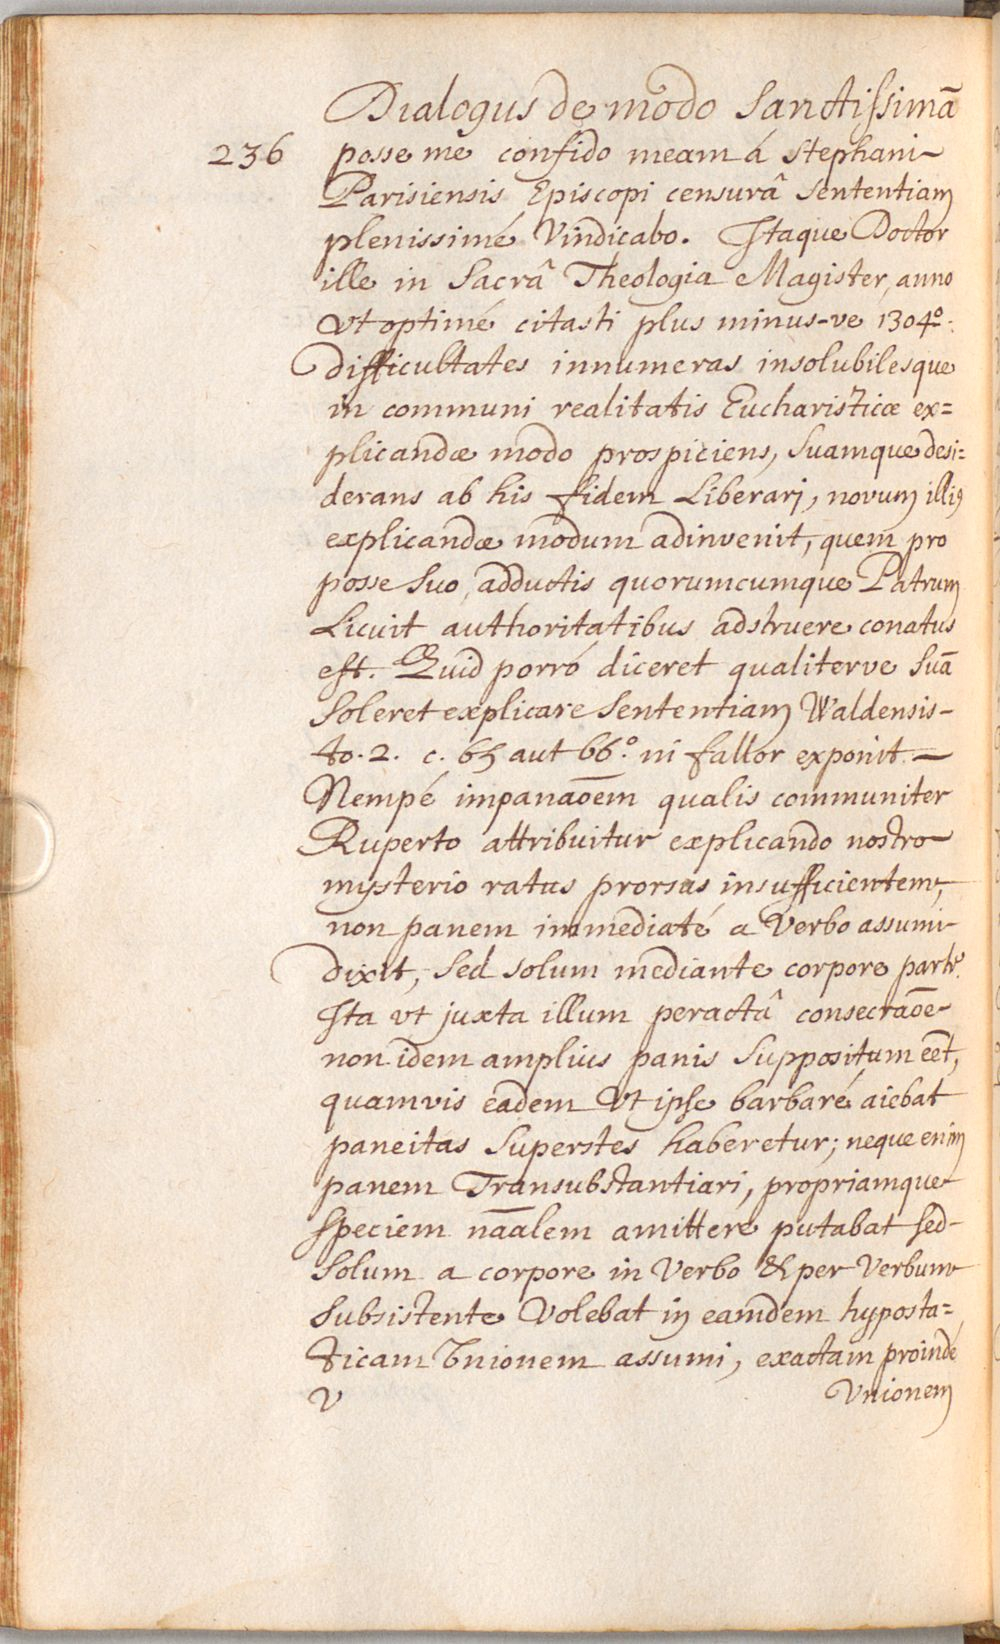 Dialogus de modo Sanctissimā
236 posse me confido meam á Stephani-
Parisiensis Episcopi censurâ Sententiam
plenissimé Vindicabo. Itaque Doctor
ille in Sacrâ Theologia Magister, anno
Vt optimé citasti plus minus-ve 1304º.
Difficultates innumeras insolubilesque
in communi realitatis Eucharisticæ ex=
plicandæ modo prospiciens, Suamque desi=
derans ab his fidem Liberarj, novum illi9
explicandæ modum adinvenit, quem pro
posse Suo, adductis quorumcumque Patrum
Licuit authoritatibus adstruere conatus
est. Quid porró diceret qualiterve Suā
Soleret explicare Sententiam Waldensis-
to. 2. c. 65 aut 66.º ni fallor exponit. —
Nempé impanaōem qualis communiter
Ruperto attribuitur explicando nostro-
mysterio ratus prorsus insufficientem,
non panem immediaté a Verbo assumi-
Dixit, Sed solum mediante corpore parte.
Ita vt juxta illum peractâ consecraōe-
non idem amplius panis Suppositum eēt,
quamvis eadem Vt ipse barbaré aiebat
paneitas Superstes haberetur; neque enim
panem Transubstantiari, propriamque
Speciem nāalem amittere putabat sed-
Solum a corpore in Verbo & per Verbum
Subsistente Volebat in eamdem hyposta=
ticam Vnionem assumi, exactam proinde
V Vnionem